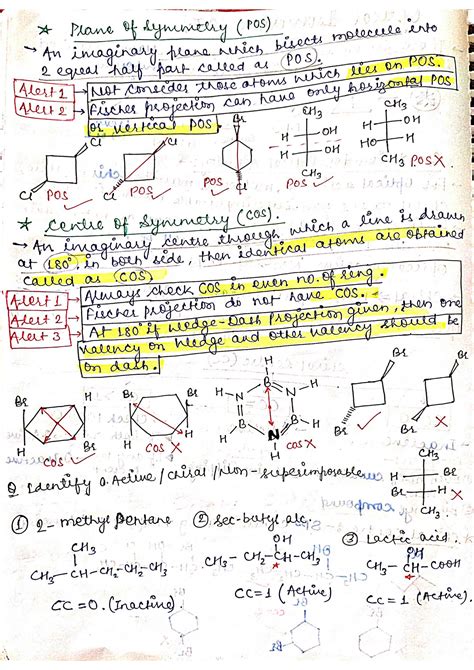 * Plane of Symmetry (POS)
→ An imaginary plane which bisects molecule into
2 equal half part called as (POS).
Alert 1 → Not consider those atoms which lies on POS.
Alert 2 → Fischer projection can have only horizontal POS
or vertical POS.
Cl Cl Br CH3 CH3
H OH H OH
H OH HO H
Cl Cl Br CH3 CH3
POS ✓ POS ✓ POS ✓ POS ✓ POS X
* Centre of Symmetry (COS).
→ An imaginary centre through which a line is drawn
at 180° in both side, then identical atoms are obtained
called as (COS)
Alert 1 → Always check COS in even no. of ring.
Alert 2 → Fischer projection do not have COS.
Alert 3 → At 180° if Wedge-Dash Projection given, then one
valency on Wedge and other valency should be
on dash.!
H Br Br
Br H Br H H B H
N N
B B
H Br H N H Br Br
H Br H
COS ✓ COS X COS X ✓ X
CH3
Q Identify O.Active / Chiral / Non-superimposable
H Br
Br H
CH3
① 2-methyl pentane ② sec-butyl alc. ③ lactic acid.
CH3 OH OH
CH3-CH-CH2-CH2-CH3 CH3-CH2-CH-CH3 CH3-CH-COOH
CC=0. (Inactive). CC=1 (Active) CC=1 (Active).